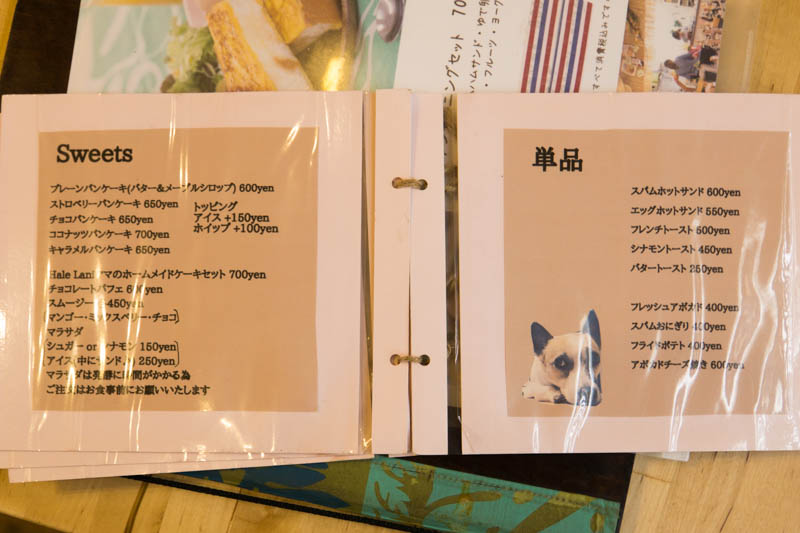 Sweets
プレーンパンケーキ(バター&メープルシロップ) 600yen
ストロベリーパンケーキ 650yen
チョコパンケーキ 650yen
ココナッツパンケーキ 700yen
キャラメルパンケーキ 650yen
トッピング
アイス +150yen
ホイップ +100yen
Hale Laniママのホームメイドケーキセット 700yen
チョコレートパフェ 600yen
スムージー 450yen
(マンゴー・ミックスベリー・チョコ)
マラサダ
(シュガー orシナモン 150yen)
アイス(中にサンド) 250yen
マラサダは発酵に時間がかかる為
ご注文はお食事前にお願いいたします
単品
スパムホットサンド 600yen
エッグホットサンド 550yen
フレンチトースト 500yen
シナモントースト 450yen
バタートースト 250yen
フレッシュアボカド 400yen
スパムおにぎり 400yen
フライドポテト 400yen
アボカドチーズ焼き 600yen
ングセット 70
ハムサンド・ゆで
・フルーツ・ヨーグ
すべて消費税込みです